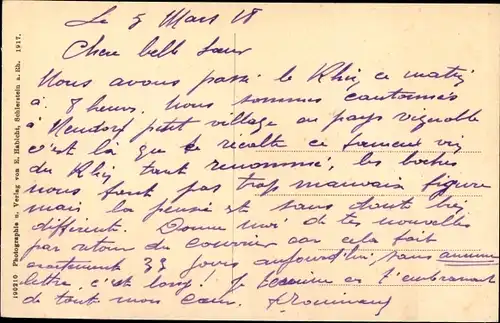 Le 5 Mars 18
Chere belle Sœur
Nous avons passé le Rhin ce matin
à 8 heures. Nous sommes cantonnés
à Neudorf petit village au pays vignoble
c'est là que se récolte ce fameux vin
du Rhin tant renommé, les boches
nous font pas trop mauvaise figure
mais la pensée est sans doute bien
différente. Donne moi de tes nouvelles
par retour du courrier car cela fait
exactement 33 jours aujourd'hui sans aucune
lettre, c'est long! Je termine en t'embrassant
de tout mon Cœur.
190210 Photographie u. Verlag von E. Habicht, Schierstein a. Rh. 1917.